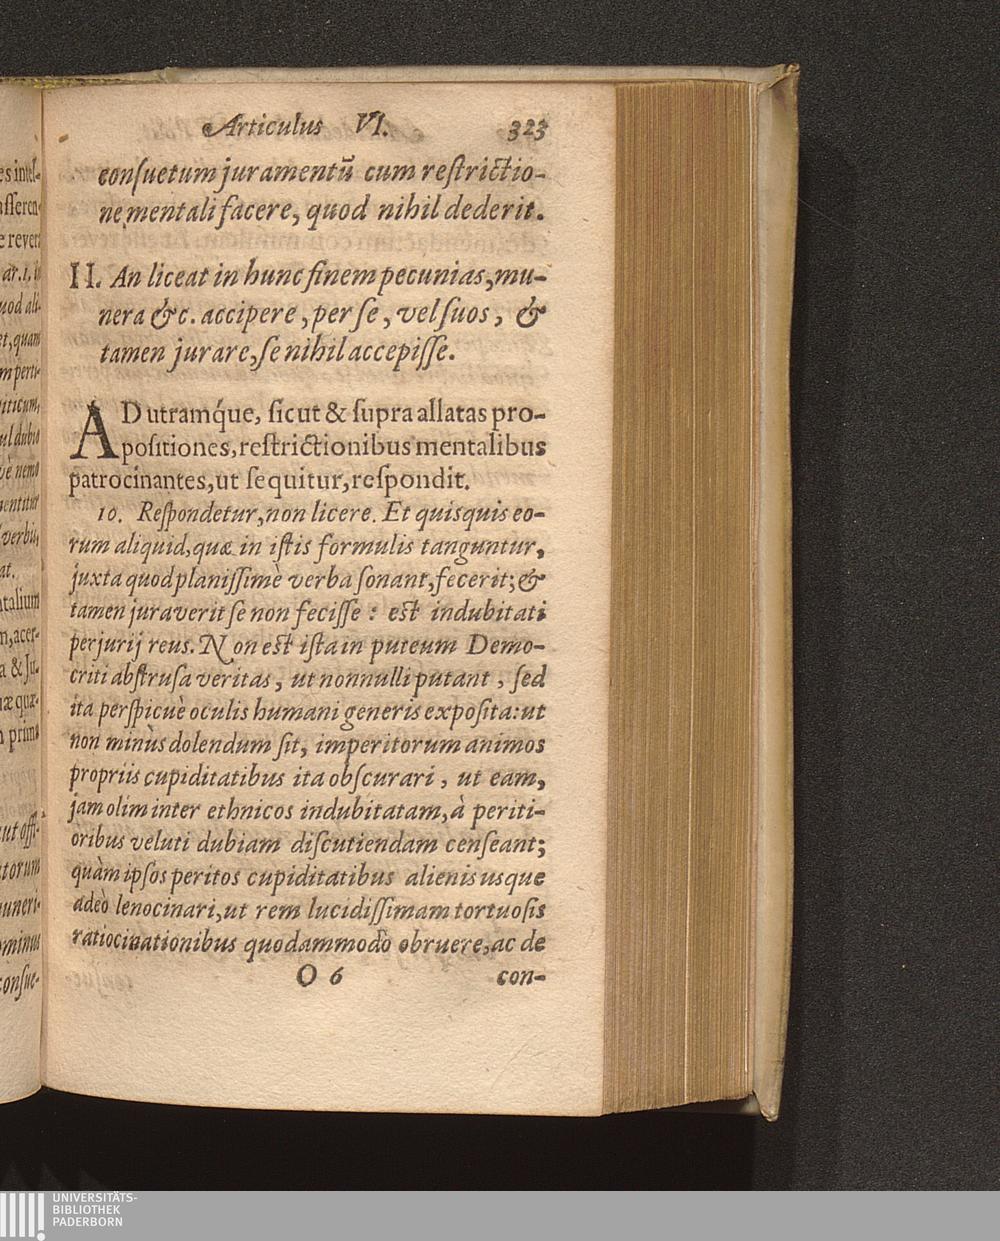 es intel-
asseren-
e revera
ar. 1. in
uod ali-
et, quam
m perti-
iticum,
ul dubio
vè nemo
entitur
verbis,
at.
ntalium
m, acer-
a & Ju-
uæ quæ-
n prima
ut offi-
torum
uneri-
ominus
consue-
Articulus VI. 323
consuetum juramentū cum restrictio-
ne mentali facere, quod nihil dederit.
II. An liceat in hunc finem pecunias, mu-
nera &c. accipere, per se, vel suos, &
tamen jurare, se nihil accepisse.
AD utramq́ue, sicut & supra allatas pro-
positiones, restrictionibus mentalibus
patrocinantes, ut sequitur, respondit.
10. Respondetur, non licere. Et quisquis eo-
rum aliquid, quæ in istis formulis tanguntur,
juxta quod planissimè verba sonant, fecerit; &
tamen juraverit se non fecisse : est indubitati
perjurij reus. Non est ista in puteum Demo-
criti abstrusa veritas, ut nonnulli putant, sed
ita perspicuè oculis humani generis exposita: ut
non minùs dolendum sit, imperitorum animos
propriis cupiditatibus ita obscurari, ut eam,
jam olim inter ethnicos indubitatam, à periti-
oribus veluti dubiam discutiendam censeant;
quàm ipsos peritos cupiditatibus alienis usque
adeò lenocinari, ut rem lucidissimam tortuosis
ratiocinationibus quodammodò obruere, ac de
O 6 con-
UNIVERSITÄTS-
BIBLIOTHEK
PADERBORN